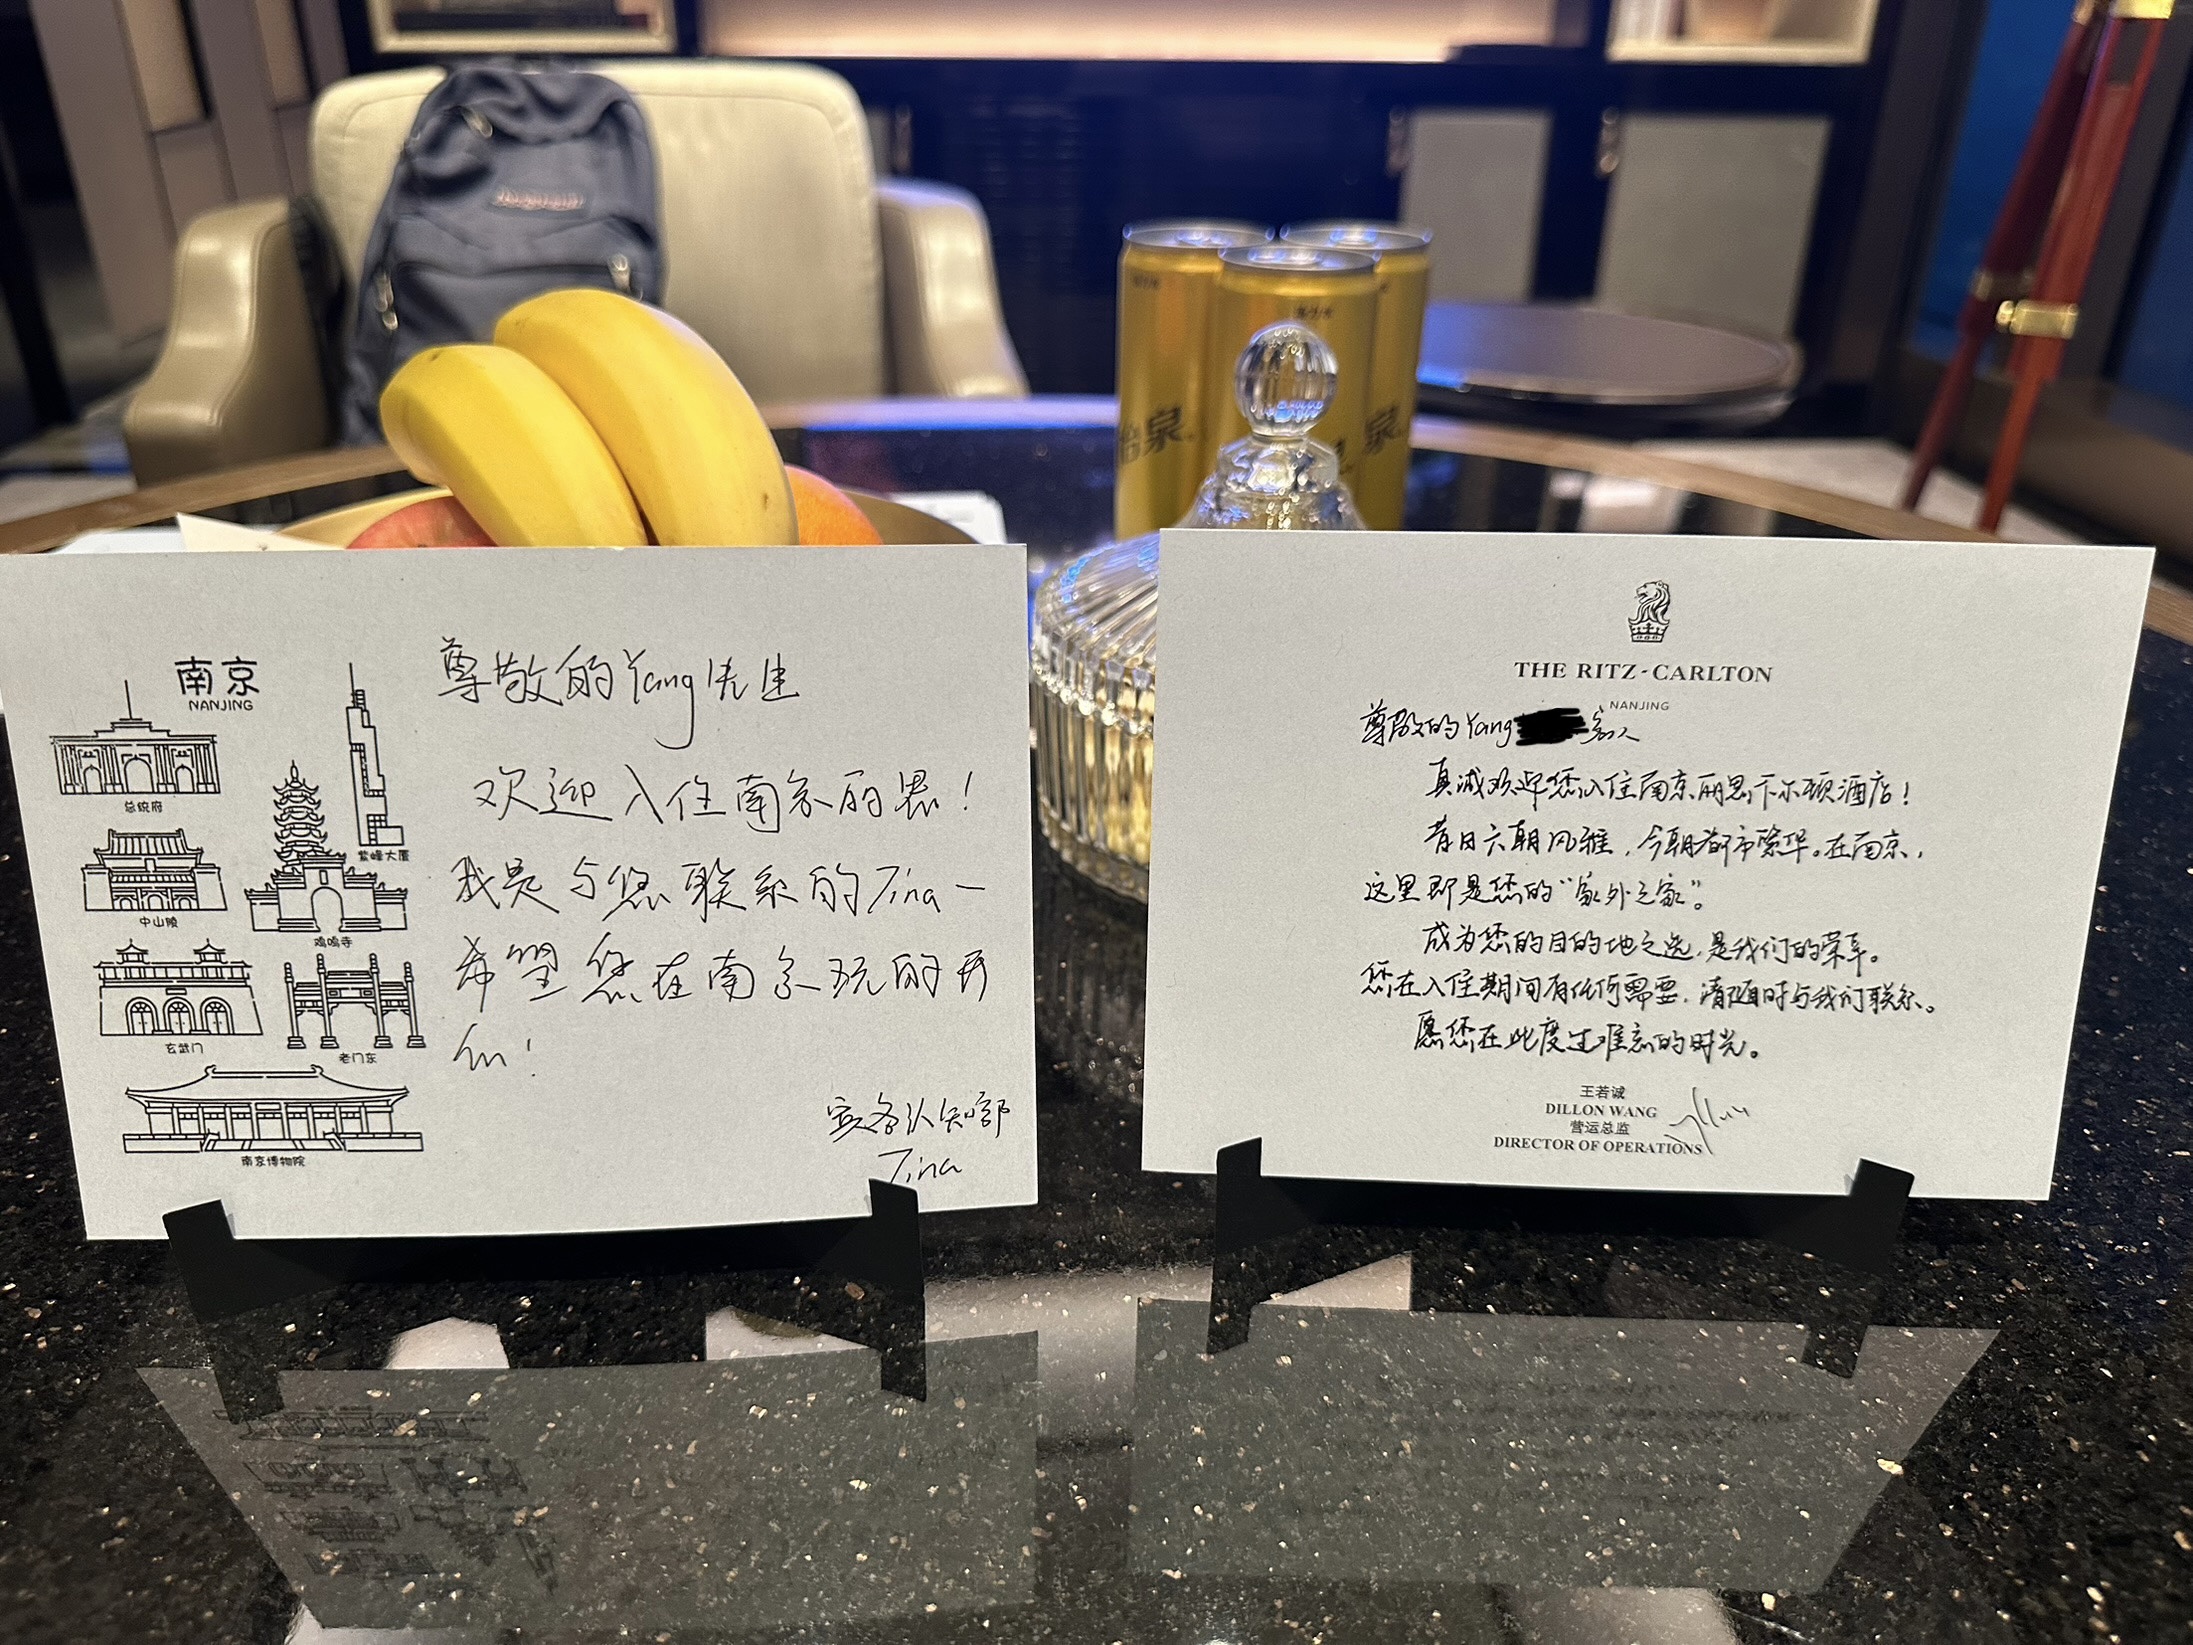 JANSPORT
怡泉
泉
南京
NANJING
总统府
紫峰大厦
中山陵
鸡鸣寺
玄武门
老门东
南京博物院
尊敬的Yang先生
欢迎入住南京丽思！
我是与您联系的Tina～
希望您在南京玩的开
心！
宾客认知部
Tina
THE RITZ-CARLTON
NANJING
尊敬的Yang 家人
真诚欢迎您入住南京丽思卡尔顿酒店！
昔日六朝风雅，今朝都市繁华。在南京，
这里即是您的“家外之家”。
成为您的目的地之选，是我们的荣幸。
您在入住期间有任何需要，请随时与我们联系。
愿您在此度过难忘的时光。
王若诚
DILLON WANG
营运总监
DIRECTOR OF OPERATIONS